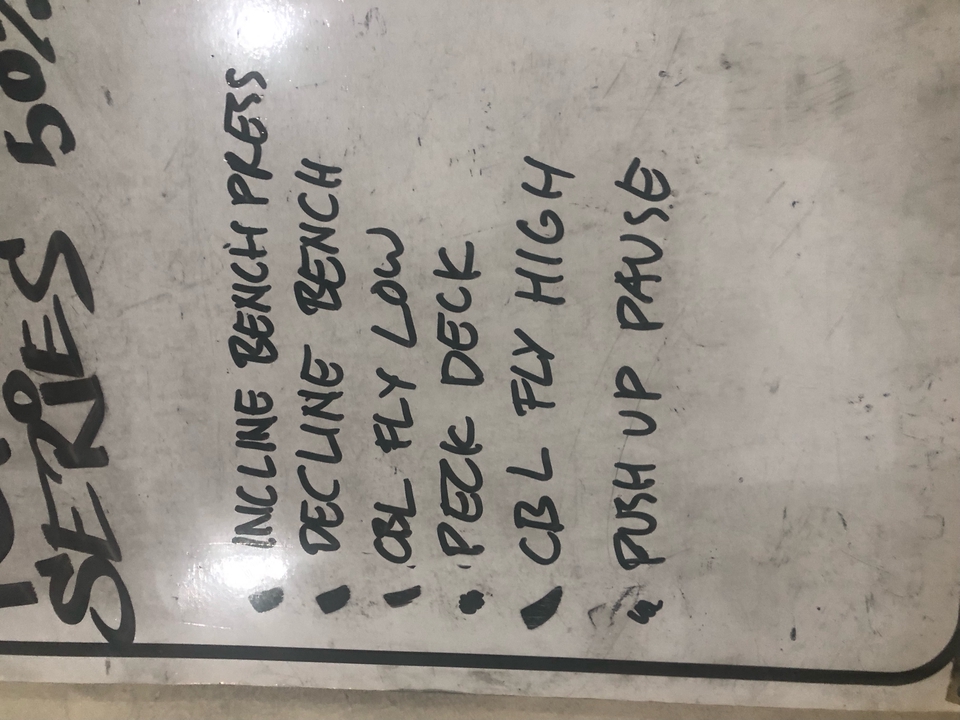 SERIES 50%
INCLINE BENCH PRESS
DECLINE BENCH
CBL FLY LOW
PECK DECK
CBL FLY HIGH
PUSH UP PAUSE